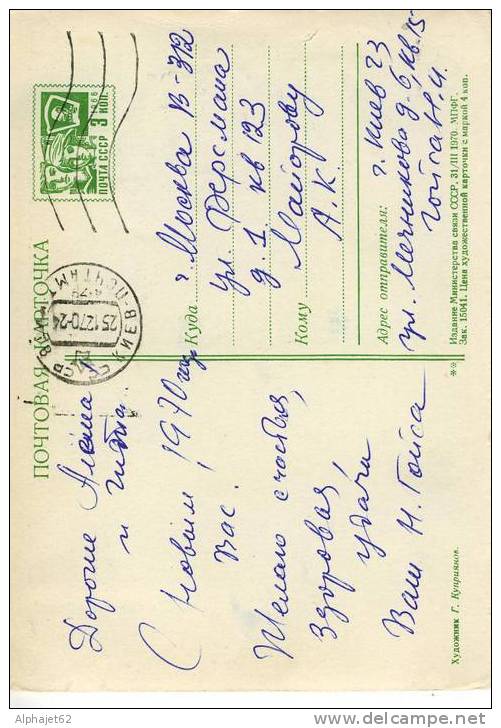 ПОЧТОВАЯ КАРТОЧКА
1966
3 коп.
ПОЧТА СССР
КИЕВ-ПОЧТАМТ
25 1270-24
Дорогие Алёша
и
С новым, 1970 год
Вас.
Желаю счастья,
здоровья,
удачи
Ваш Н. Гойса
Художник Г. Куприянов.
Куда г. Москва В-312
ул Ферсмана
д. 1 кв 123
Кому Майорову
А. К
Адрес отправителя: г. Киев 23
ул. Мечникова д. 6, кв. 15
Гойса Н. И.
Издание Министерства связи СССР. 31/III 1970. МПФГ.
Зак. 15041. Цена художественной карточки с маркой 4 коп.
**
Alphajet62
http://www.delcampe.net